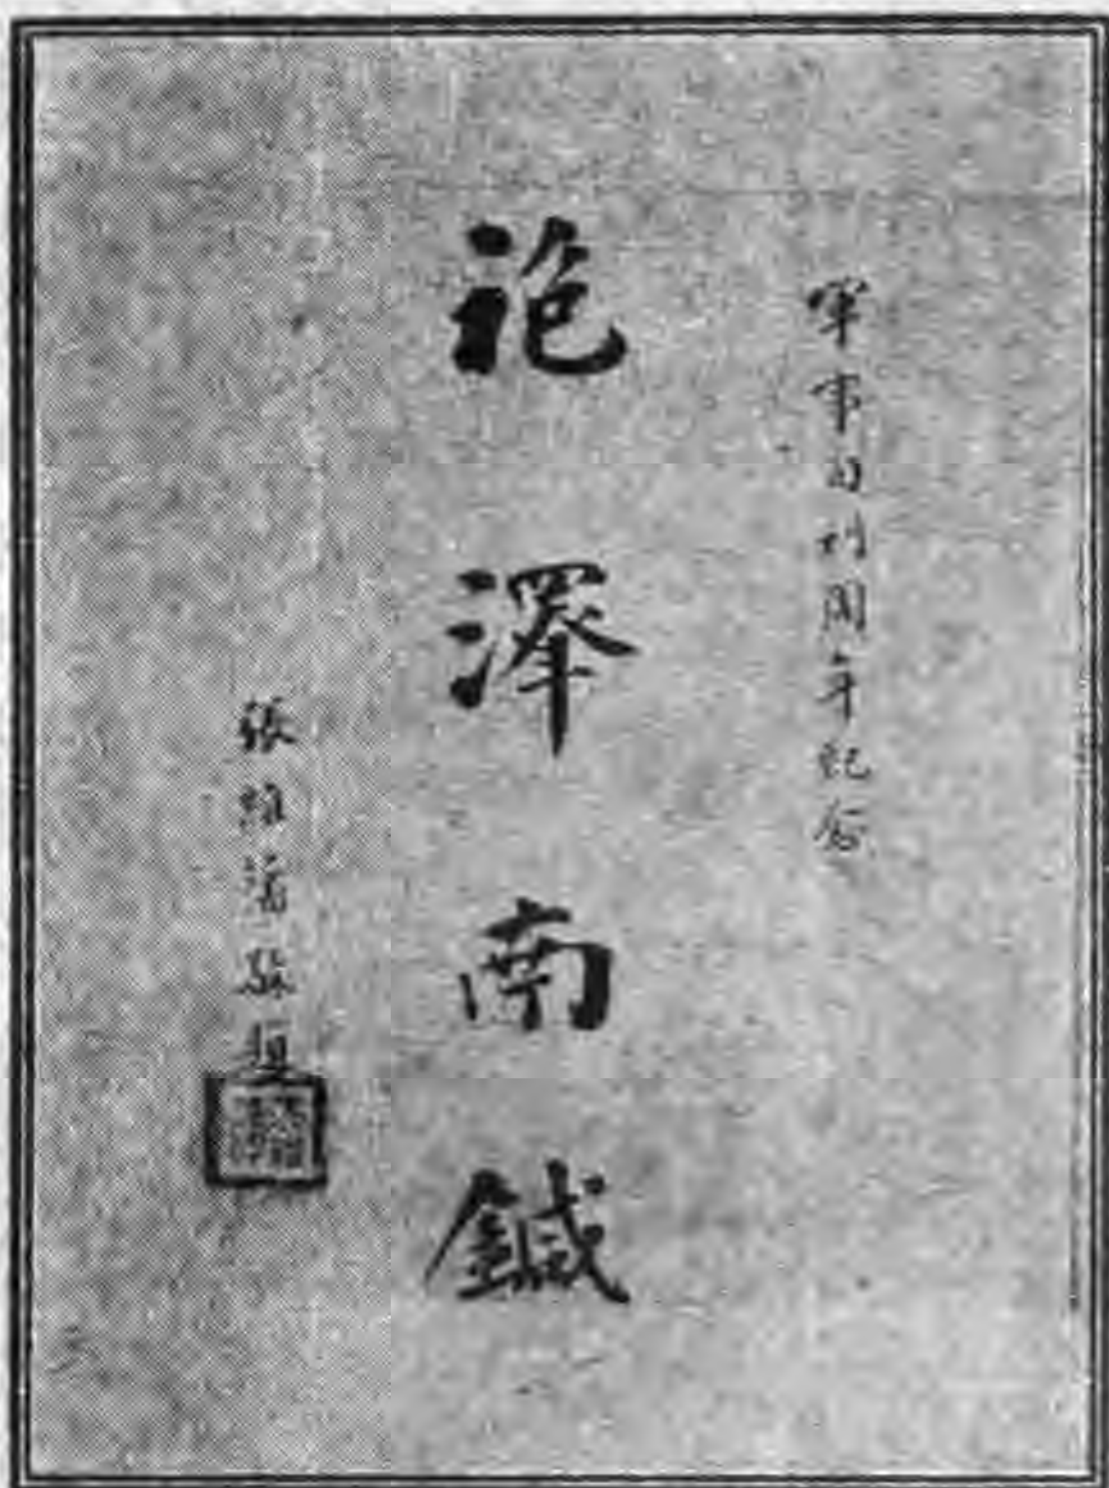 軍事月刊周年紀念
袍澤南鍼
張維藩敬題